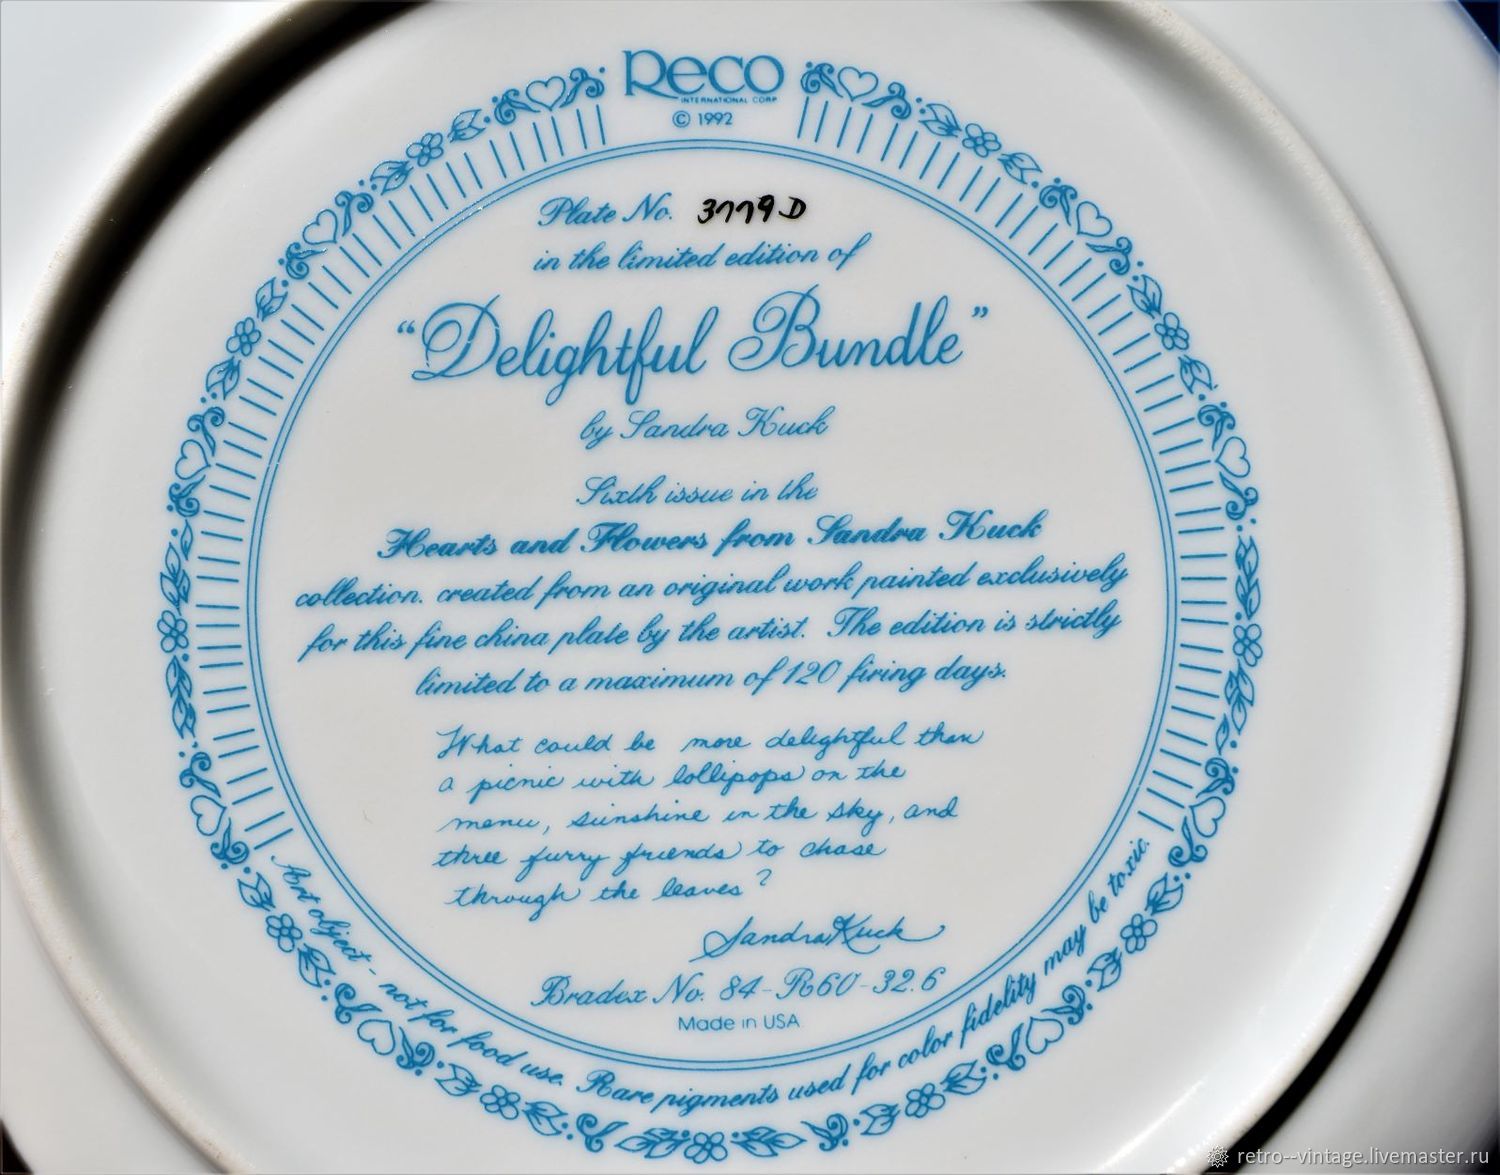 Reco
INTERNATIONAL CORP
© 1992
Plate No. 3779D
in the limited edition of
“Delightful Bundle”
by Sandra Kuck
Sixth issue in the
Hearts and Flowers from Sandra Kuck
collection. created from an original work painted exclusively
for this fine china plate by the artist. The edition is strictly
limited to a maximum of 120 firing days.
What could be more delightful than
a picnic with lollipops on the
menu, sunshine in the sky, and
three furry friends to chase
through the leaves?
Sandra Kuck
Bradex No. 84-R60-32.6
Made in USA
Art object - not for food use. Rare pigments used for color fidelity may be toxic.
retro--vintage.livemaster.ru